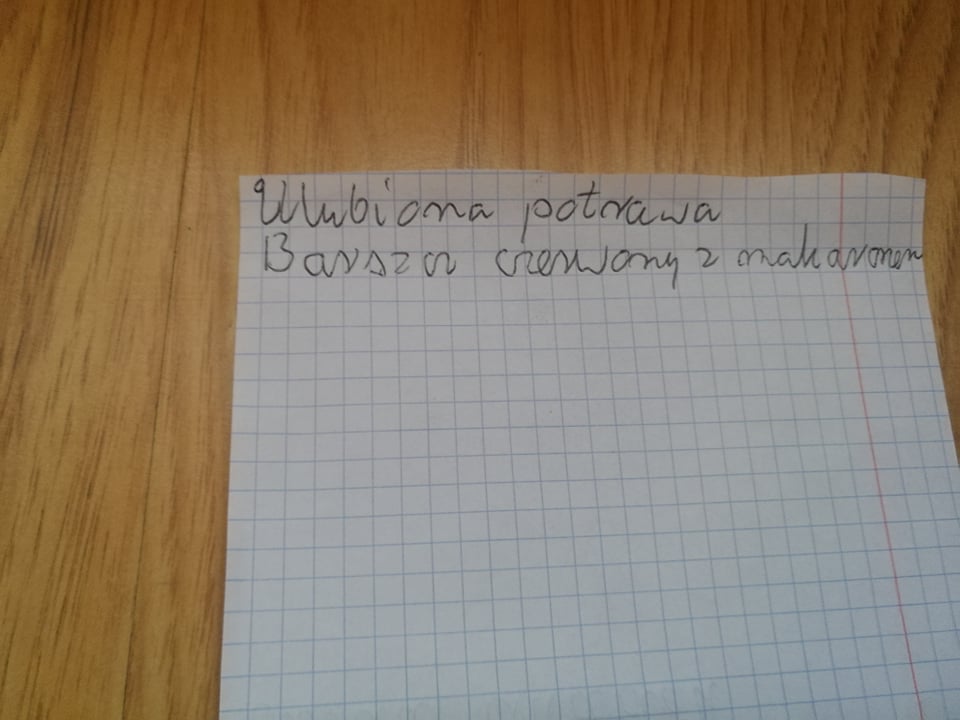 Ulubiona potrawa
Barszcz czerwony z makaronem